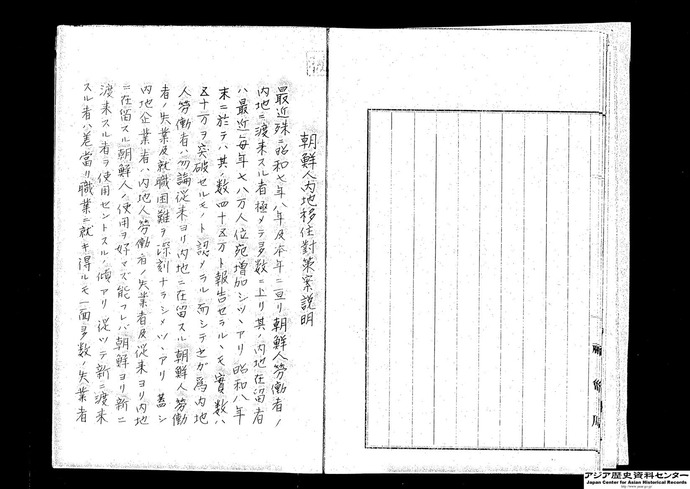 朝鮮人內地移住對策案說明
最近殊ニ昭和七年八年及本年ニ亘リ朝鮮人勞働者ノ
内地ニ渡來スル者極メテ多數ニ上リ其ノ内地在留者
ハ最近毎年七八万人位宛增加シツヽアリ昭和八年
末ニ於テハ其ノ数四十五万ト報告セラルヽモ實數ハ
五十万ヲ突破セルモノト認メラル而シテ之ガ爲内地
人勞働者ハ勿論従来ヨリ内地ニ在留スル朝鮮人勞働
者ノ失業及就職困難ヲ深刻ナラシメツヽアリ蓋シ
内地企業者ハ内地人勞働者ノ失業者及従来ヨリ内地
ニ在留スル朝鮮人ノ使用ヲ好マズ能フレバ朝鮮ヨリ新ニ
渡來スル者ヲ使用セントスルノ傾アリ従ツテ新ニ渡来
スル者ハ差當リ職業ニ就キ得ルモ一面多数ノ失業者
アジア歴史資料センター
Japan Center for Asian Historical Records
http://www.jacar.go.jp/